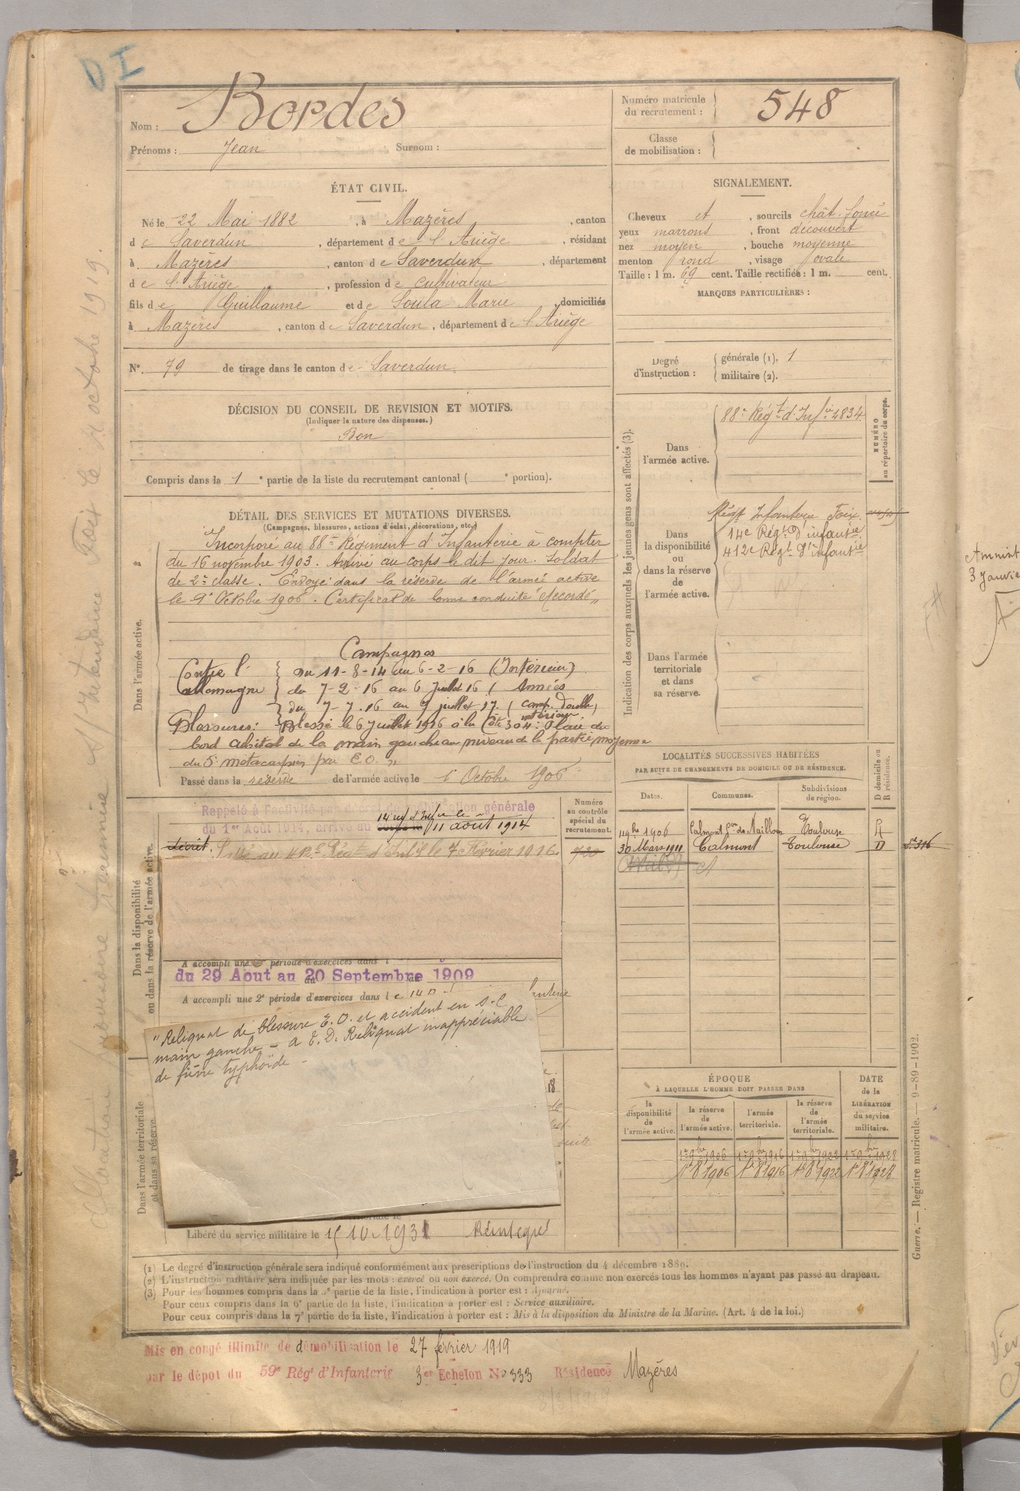 DI
Nom : Bordes
Prénoms : Jean Surnom :
Numéro matricule du recrutement : 548
Classe de mobilisation :
ÉTAT CIVIL.
Né le 22 Mai 1882, à Mazères, canton
de Saverdun, département de l'Ariège, résidant
à Mazères, canton de Saverdun, département
de l'Ariège, profession de Cultivateur
fils de Guillaume et de Soula Marie, domiciliés
à Mazères, canton de Saverdun, département de l'Ariège
N° 79 de tirage dans le canton de Saverdun.
SIGNALEMENT.
Cheveux et, sourcils chât. foncé
yeux marrons, front découvert
nez moyen, bouche moyenne
menton rond, visage ovale
Taille : 1 m. 69 cent. Taille rectifiée : 1 m. cent.
MARQUES PARTICULIÈRES :
Degré d'instruction : générale (1). 1
militaire (2).
DÉCISION DU CONSEIL DE REVISION ET MOTIFS.
(Indiquer la nature des dispenses.)
Bon
Compris dans la 1e partie de la liste du recrutement cantonal ( e portion).
DÉTAIL DES SERVICES ET MUTATIONS DIVERSES.
(Campagnes, blessures, actions d'éclat, décorations, etc.)
Dans l'armée active.
Incorporé au 88e Régiment d'Infanterie à compter
du 16 novembre 1903. Arrivé au corps le dit jour. Soldat
de 2e classe. Envoyé dans la réserve de l'armée active
le 9 Octobre 1906. Certificat de bonne conduite "Accordé"
Campagnes
Contre l'Allemagne
du 11-8-14 au 6-2-16 (Intérieur)
du 7-2-16 au 6 juillet 16 (Armées
du 7-7-16 au 9 juillet 17 (camp. double,
Blessures : Blessé le 6 juillet 1916 à la Côte 304 : Plaie du
bord cubital de la main gauche au niveau de la partie moyenne
du 5e métacarpien par E.O. "
Passé dans la réserve de l'armée active le 6 Octobre 1906
Indication des corps auxquels les jeunes gens sont affectés (3).
NUMÉRO au répertoire du corps.
Dans l'armée active.
88e Régt d'Infie 4834
Dans la disponibilité ou dans la réserve de l'armée active.
Régt Infanterie Foix
14e Régt d'infantie
412e Régt d'infantie
Dans l'armée territoriale et dans sa réserve.
LOCALITÉS SUCCESSIVES HABITÉES
PAR SUITE DE CHANGEMENTS DE DOMICILE OU DE RÉSIDENCE.
Dates. Communes. Subdivisions de région. D domicile ou R résidence.
9bre 1906 Calmont Toulouse R
30 Mars 1911 Calmont Toulouse D
Dans la disponibilité ou dans la réserve de l'armée active.
Numéro au contrôle spécial du recrutement.
Rappelé à l'activité par décret de mobilisation générale
du 1er Août 1914, arrivé au 14e rég. d'Infie le 11 août 1914
Passé au 412e Régt d'Inf le 7 Février 1916.
A accompli une période d'exercices dans :
du 29 Aout au 20 Septembre 1909
A accompli une 2e période d'exercices dans le 14
"Reliquat de blessure E.O. et accident en s.c
main gauche - à E.D. Reliquat inappréciable
de fièvre typhoïde -
Dans l'armée territoriale et dans sa réserve.
Libéré du service militaire le 15 10-1931 Réintégré
ÉPOQUE
À LAQUELLE L'HOMME DOIT PASSER DANS
la disponibilité de l'armée active. la réserve de l'armée active. l'armée territoriale. la réserve de l'armée territoriale.
DATE de la LIBÉRATION du service militaire.
1er 9bre 1906 1er 9bre 1916 1er 9bre 1922 1er 9bre 1928
1er 8 1906 1er 8 1916 1er 8 1922 1er 8 1928
(1) Le degré d'instruction générale sera indiqué conformément aux prescriptions de l'instruction du 4 décembre 1889.
(2) L'instruction militaire sera indiquée par les mots : exercé ou non exercé. On comprendra comme non exercés tous les hommes n'ayant pas passé au drapeau.
(3) Pour les hommes compris dans la 5e partie de la liste, l'indication à porter est : Ajourné.
Pour ceux compris dans la 6e partie de la liste, l'indication à porter est : Service auxiliaire.
Pour ceux compris dans la 7e partie de la liste, l'indication à porter est : Mis à la disposition du Ministre de la Marine. (Art. 4 de la loi.)
Mis en congé illimité de démobilisation le 27 février 1919
par le dépôt du 59e Régt d'Infanterie 3er Echelon No 333 Résidence Mazères
Guerre. — Registre matricule. — 9-89-1902.
Foix le octobre 1919.